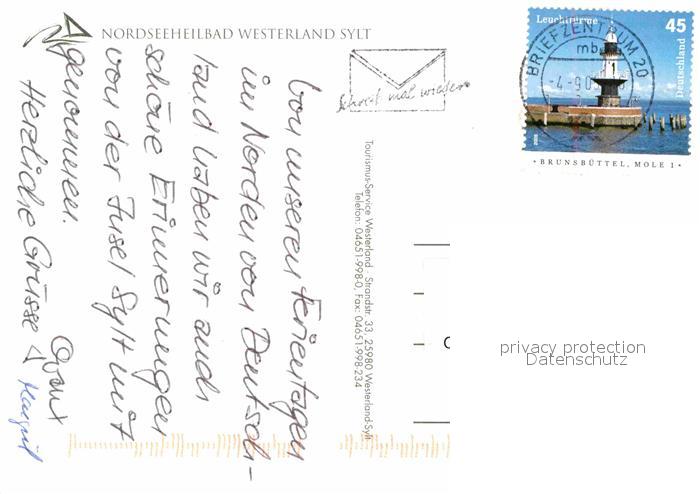 NORDSEEHEILBAD WESTERLAND SYLT
Von unseren Ferientagen
im Norden von Deutsch-
land haben wir auch
schöne Erinnerungen
von der Insel Sylt mit
genommen.
Herzliche Grüsse
Schreib mal wieder
Tourismus-Service Westerland · Strandstr. 33, 25980 Westerland-Sylt
Telefon: 04651-998-0, Fax: 04651-998-234
Leuchttürme
45
Deutschland
BRIEFZENTRUM 20
mb
BRUNSBÜTTEL, MOLE 1
privacy protection
Datenschutz